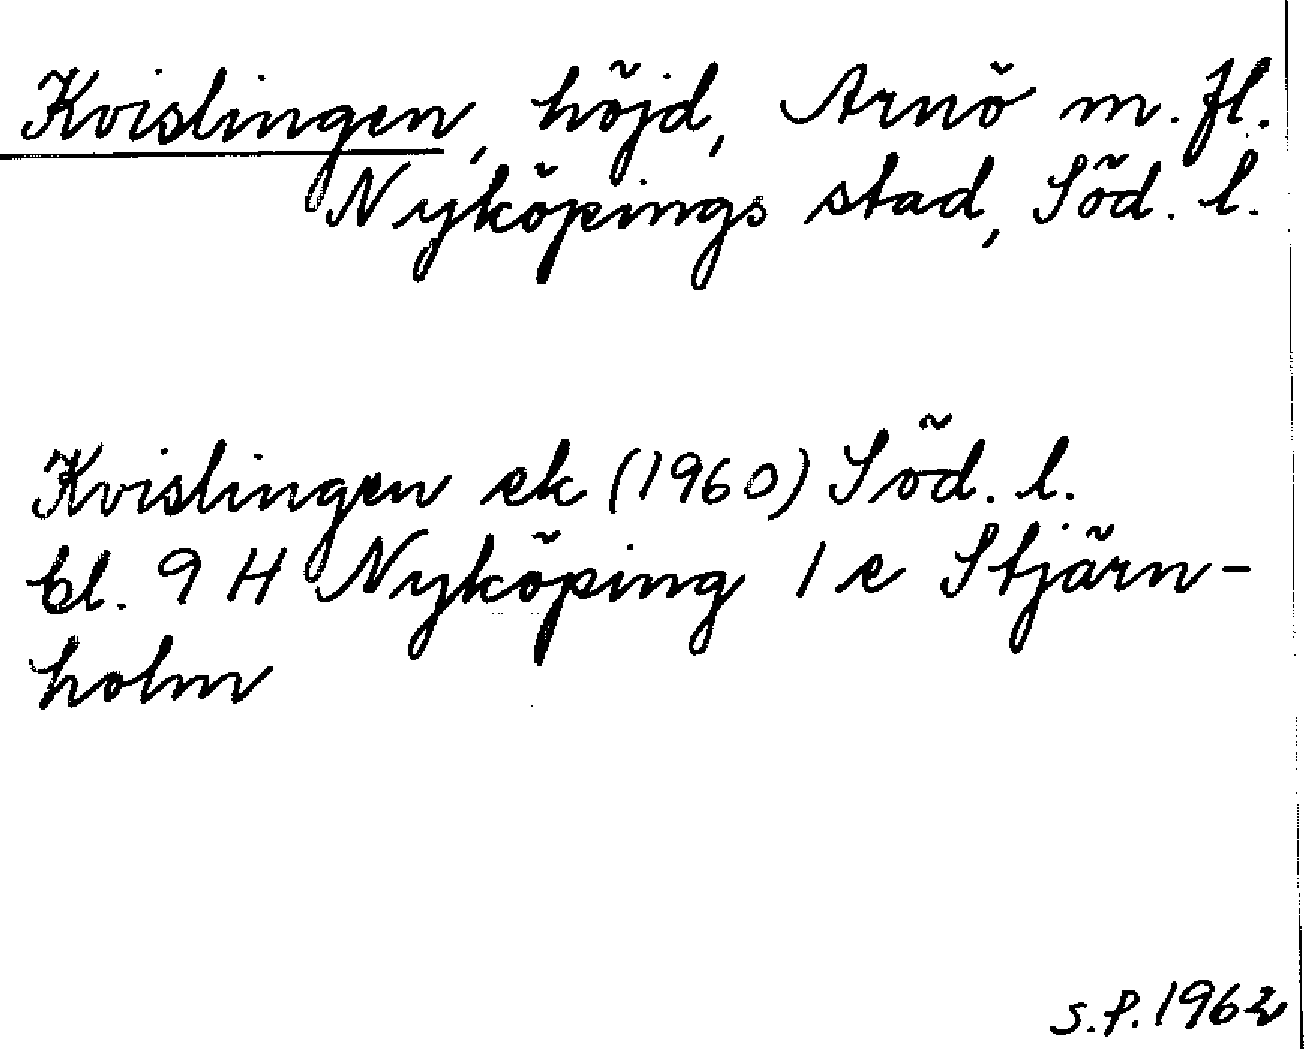 Kvislingen, höjd, Arnö m. fl.
Nyköpings stad, Söd. l.
Kvislingen ek (1960) Söd. l.
bl. 9 H Nyköping 1 e Stjärn-
holm
S.P. 1962